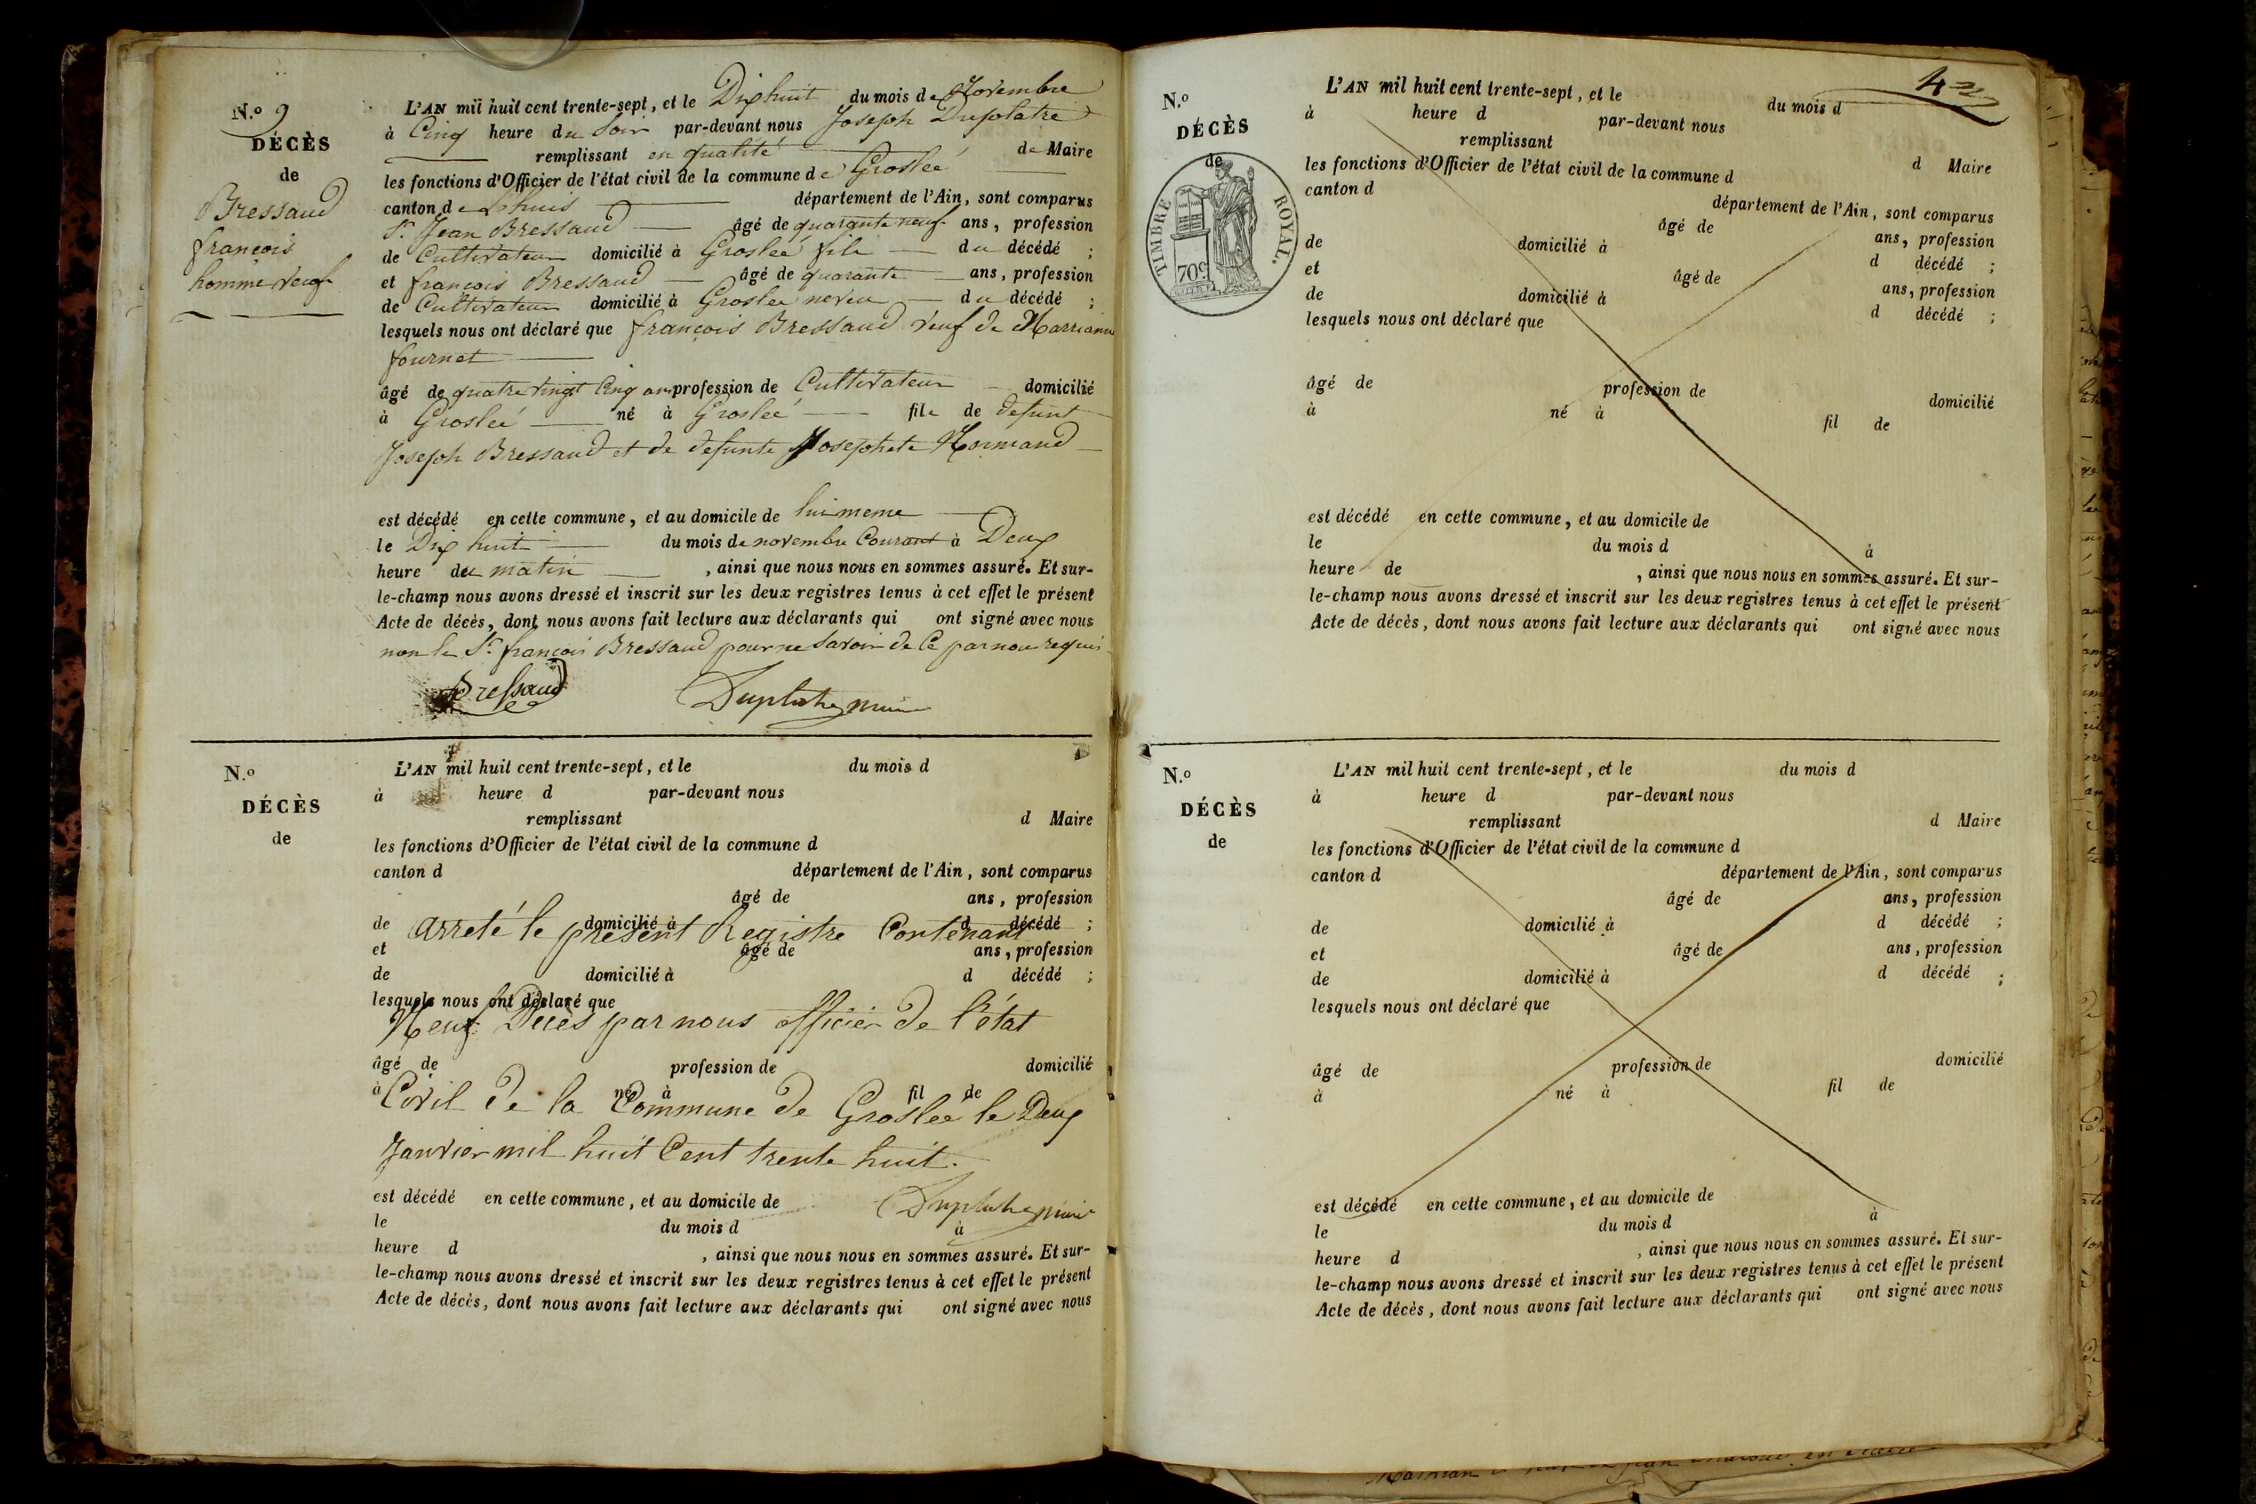 N.º 9
DÉCÈS
de
Bressaud
françois
homme veuf
L'AN mil huit cent trente-sept, et le Dix huit du mois de Novembre
à Cinq heure du Soir par-devant nous Joseph Duplatre
remplissant en qualité de Maire
les fonctions d'Officier de l'état civil de la commune de Groslée
canton de Lhuis département de l'Ain, sont comparus
Sr. Jean Bressaud âgé de quarante neuf ans, profession
de Cultivateur domicilié à Groslée fils du décédé ;
et françois Bressaud âgé de quarante ans, profession
de Cultivateur domicilié à Groslee neveu du décédé ;
lesquels nous ont déclaré que françois Bressaud veuf de Marrianne
fournet
âgé de quatre vingt Cinq ans profession de Cultivateur domicilié
à Groslée né à Groslée fils de defunt
Joseph Bressaud et de defunte Josephete Normand
est décédé en cette commune, et au domicile de lui meme
le Dix huit du mois de novembre Courant à Deux
heure du matin , ainsi que nous nous en sommes assuré. Et sur-
le-champ nous avons dressé et inscrit sur les deux registres tenus à cet effet le présent
Acte de décès, dont nous avons fait lecture aux déclarants qui ont signé avec nous
non le Sr. françois Bressaud pour ne Savoir de Ce par nous requis
Bressaud Duplatre maire
N.º
DÉCÈS
de
L'AN mil huit cent trente-sept, et le du mois d
à heure d par-devant nous
remplissant d Maire
les fonctions d'Officier de l'état civil de la commune d
canton d département de l'Ain, sont comparus
âgé de ans, profession
de domicilié à d décédé ;
arreté le présent Registre Contenant
et âgé de ans, profession
de domicilié à d décédé ;
lesquels nous ont déclaré que
Neuf Décès par nous officier de l'état
âgé de profession de domicilié
à né à fil de
Civil de la Commune de Groslée le Deux
Janvier mil huit Cent trente huit.
est décédé en cette commune, et au domicile de
Duplatre maire
le du mois d à
heure d , ainsi que nous nous en sommes assuré. Et sur-
le-champ nous avons dressé et inscrit sur les deux registres tenus à cet effet le présent
Acte de décès, dont nous avons fait lecture aux déclarants qui ont signé avec nous
4
N.º
DÉCÈS
de
TIMBRE ROYAL.
70c
L'AN mil huit cent trente-sept, et le du mois d
à heure d par-devant nous
remplissant d Maire
les fonctions d'Officier de l'état civil de la commune d
canton d département de l'Ain, sont comparus
âgé de ans, profession
de domicilié à d décédé ;
et âgé de ans, profession
de domicilié à d décédé ;
lesquels nous ont déclaré que
âgé de profession de domicilié
à né à fil de
est décédé en cette commune, et au domicile de
le du mois d à
heure de , ainsi que nous nous en sommes assuré. Et sur-
le-champ nous avons dressé et inscrit sur les deux registres tenus à cet effet le présent
Acte de décès, dont nous avons fait lecture aux déclarants qui ont signé avec nous
N.º
DÉCÈS
de
L'AN mil huit cent trente-sept, et le du mois d
à heure d par-devant nous
remplissant d Maire
les fonctions d'Officier de l'état civil de la commune d
canton d département de l'Ain, sont comparus
âgé de ans, profession
de domicilié à d décédé ;
et âgé de ans, profession
de domicilié à d décédé ;
lesquels nous ont déclaré que
âgé de profession de domicilié
à né à fil de
est décédé en cette commune, et au domicile de
le du mois d à
heure d , ainsi que nous nous en sommes assuré. Et sur-
le-champ nous avons dressé et inscrit sur les deux registres tenus à cet effet le présent
Acte de décès, dont nous avons fait lecture aux déclarants qui ont signé avec nous